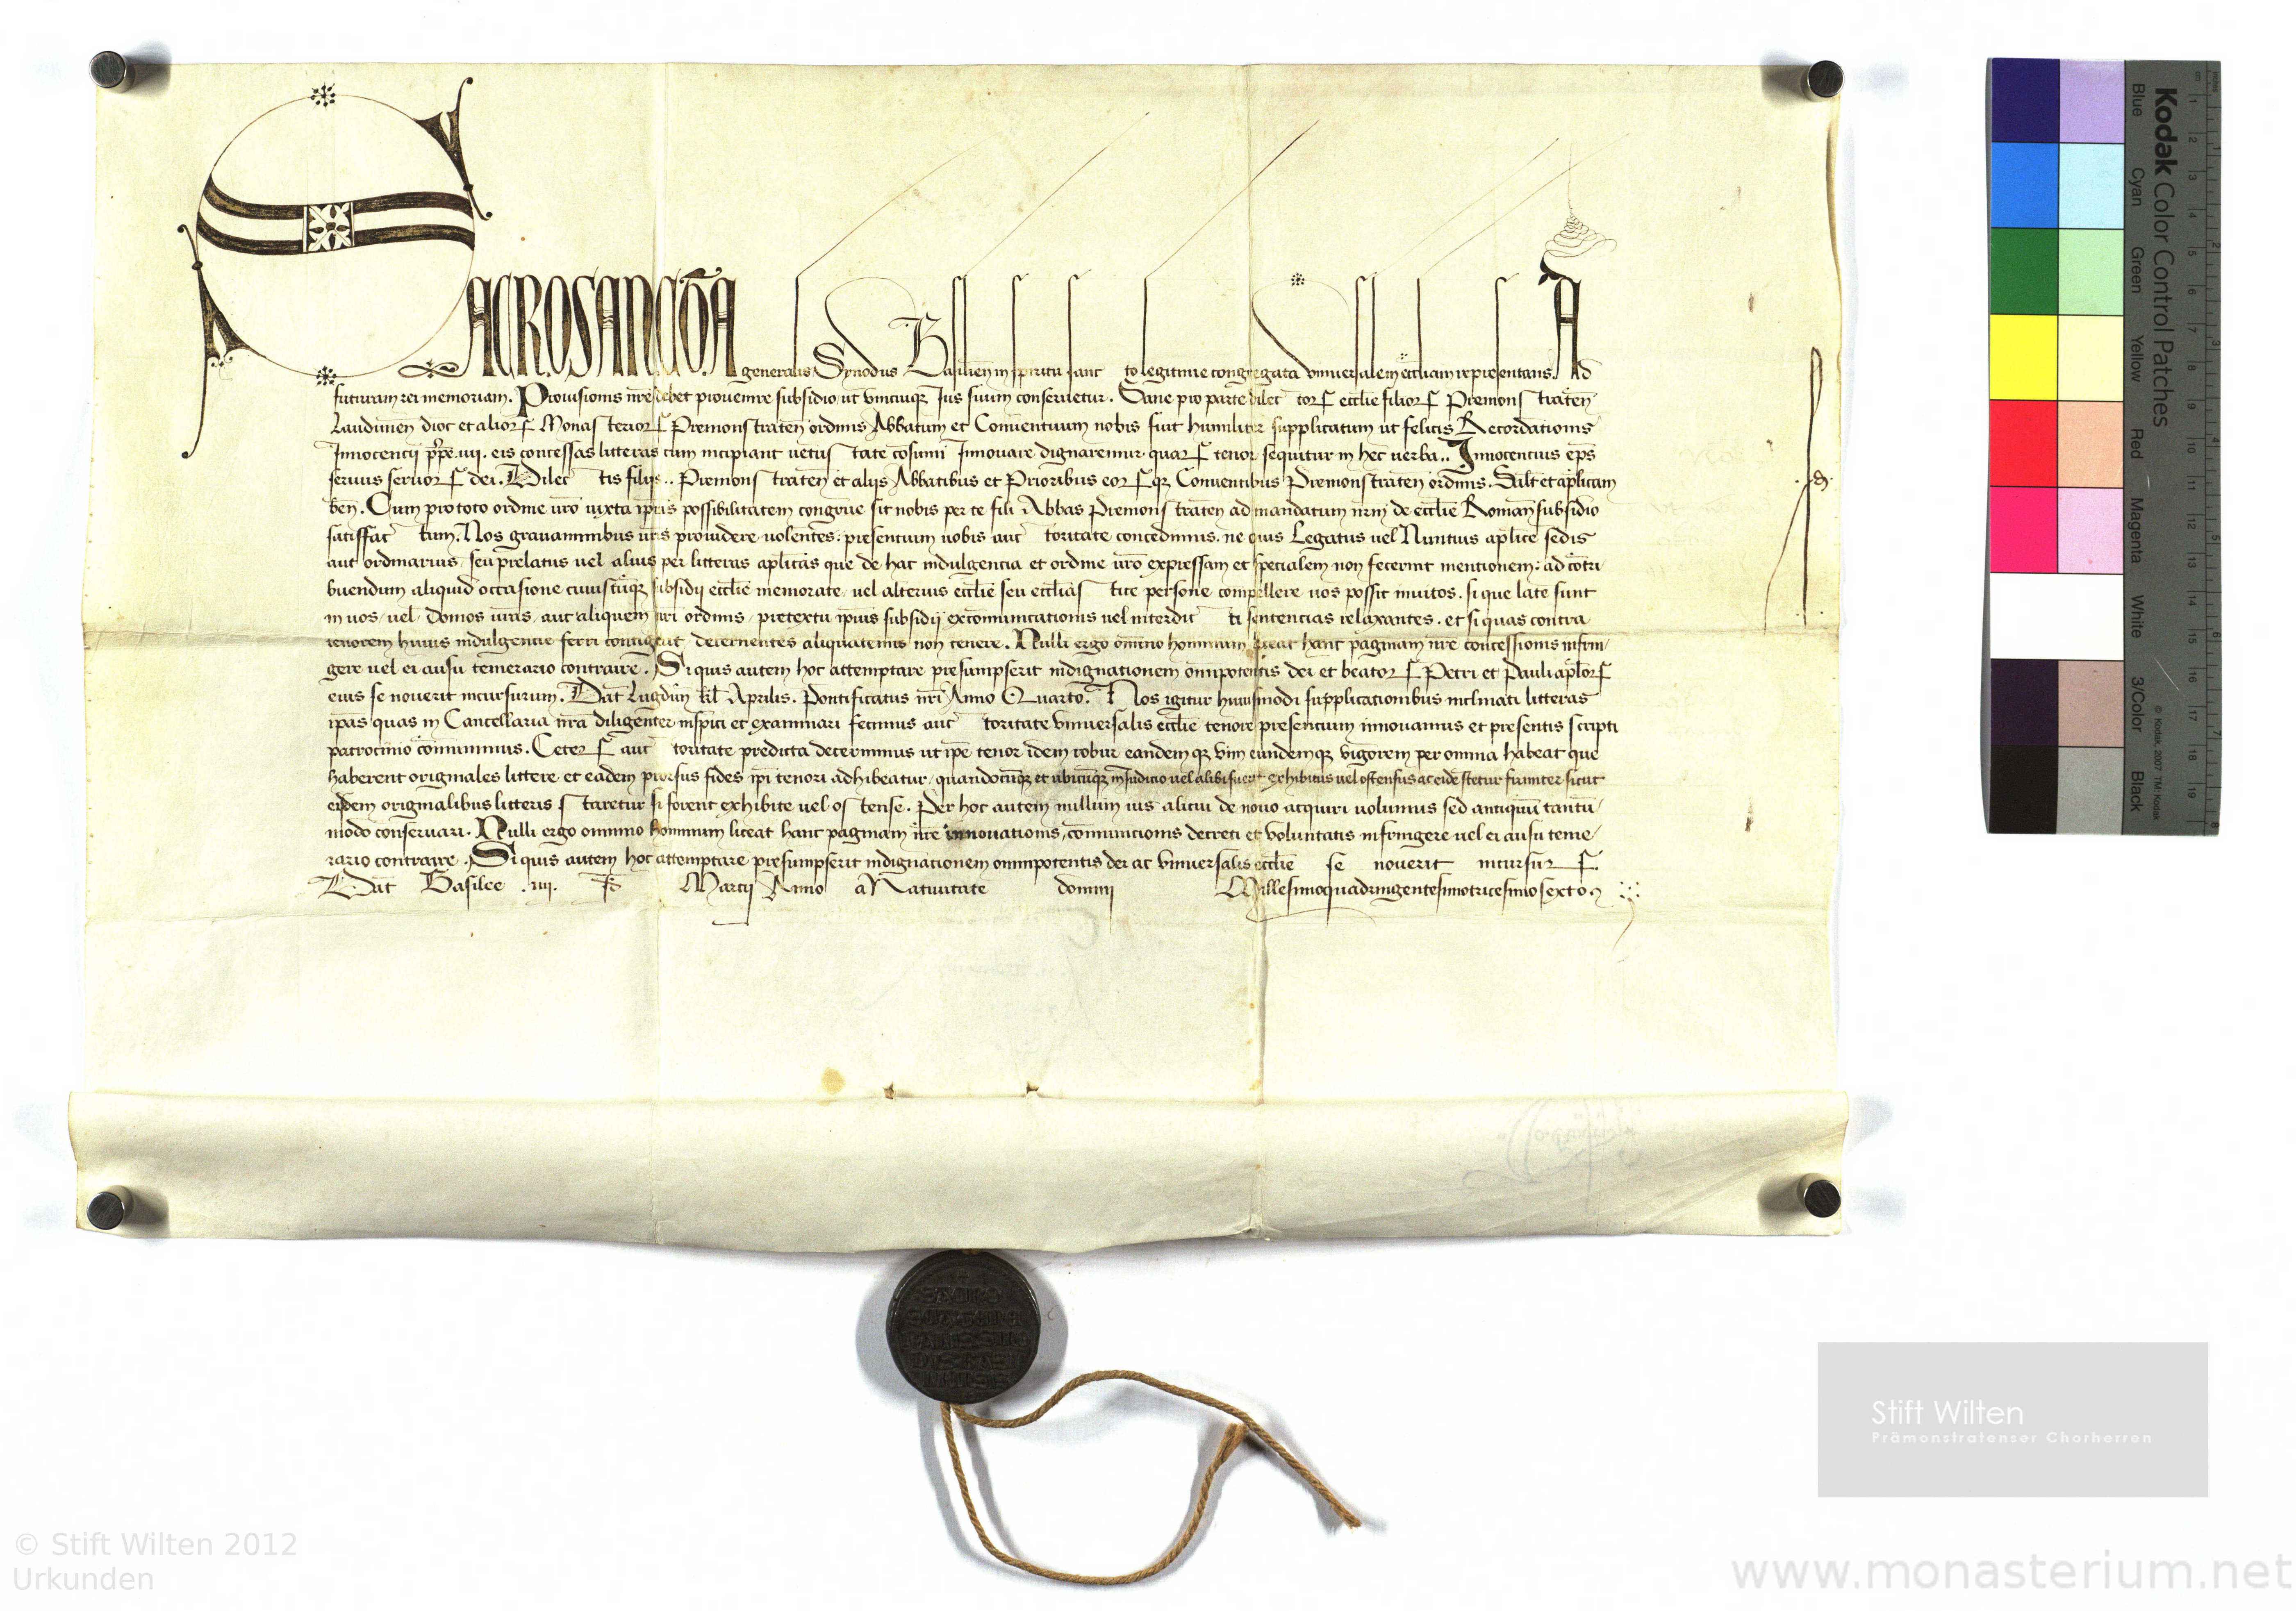 SACROSANCTA generalis Synodus Basilien̄ in spiritu sancto legitime congregata vniuersalem eccl̄iam representans. Ad
futuram rei memoriam. Prouisionis nr̄e debet prouenire subsidio, ut vnicuiqꝫ Jus suum conseruetur. Sane pro parte dilectorꝝ ecclie filiorꝝ Premonstraten̄
Laudunen̄ dioc̄ et aliorꝝ Monasteriorꝝ Premonstraten̄ ordinis Abbatum et Conuentuum nobis fuit humiliter supplicatum ut felicis Recordationis
Innocencij pp̄e .iiij. eis concessas litteras cum incipiant uetustate cōsumi Innouare dignaremur. quarꝝ tenor sequitur in hec uerba.. Innocencius ep̄s
seruus seruorꝝ dei. Dilectis filijs .. Premonstraten̄ et alijs Abbatibus et Prioribus eorꝝqꝫ Conuentibus Premonstraten̄ ordinis. Salt̄ et ap̄licam
ben̄. Cum pro toto ordine ur̄o iuxta ip̄ius possibilitatem congrue sit nobis per te fili Abbas Premonstraten̄ ad mandatum nr̄m de eccl̄ie Roman̄ subsidio
satisfactum. Nos grauaminibus ur̄is prouidere uolentes. presentium uobis auctoritate concedimus. ne quis Legatus uel Nuntius ap̄lice sedis
aut ordinarius, seu prelatus uel alius per litteras ap̄licas que de hac indulgencia et ordine ur̄o expressam et specialem non fecerint mentionem. ad cōtri
buendum aliquid occasione cuiuscūqꝫ subsidij eccl̄ie memorate, uel alterius eccl̄ie seu eccl̄iastice persone compellere uos possit inuitos. si que late sunt
in uos, uel domos ur̄as, aut aliquem ur̄i ordinis, pretextu ip̄ius subsidij excōmunicationis uel interdicti sentencias relaxantes. et si quas contra
tenorem huius indulgentie ferri contigerit, decernentes aliquatenus non tenere. Nulli ergo om̄ino hominum liceat hanc paginam nr̄e concessionis infrin,
gere uel ei ausu temerario contraire. Si quis autem hoc attemptare presumpserit indignationem om̄ipotentis dei et beatorꝝ Petri et Pauli ap̄lorꝝ
eius se nouerit incursurum. Dat̄ Lugdun̄ kl̄ Aprilis. Pontificatus nr̄i Anno Quarto. Nos igitur huiusmodi supplicationibus inclinati litteras
ip̄as quas in Cancellaria nr̄a diligenter inspici et examinari fecimus auctoritate vniuersalis eccl̄ie tenore presencium innouamus et presentis scripti
patrocinio cōmunimus. Ceterꝝ auctoritate predicta decernimus ut ip̄e tenor idem robur eandemqꝫ vim eundemqꝫ vigorem per omnia habeat que
haberent originales littere et eadem prorsus fides ip̄i tenori adhibeatur, quandocūqꝫ et ubicūqꝫ in Judicio uel alibi fuerit exhibitus uel ostensus ac eidē stetur firmiter sicut
eisdem originalibus litteris staretur si forent exhibite uel ostense. Per hoc autem nullum ius alicui de nouo acquiri uolumus sed antiquū tantū,
modo conseruari. Nulli ergo omnino hominum liceat hanc paginam nr̄e innouationis, cōmunicionis decreti et voluntatis infringere uel ei ausu teme,
rario contraire. Si quis autem hoc attemptare presumpserit indignationem omnipotentis dei ac vniuersalis eccl̄ie se nouerit incursurꝝ
Dat̄ Basilee .iiij. kl̄ Marcij Anno a Natiuitate domini Millesimoquadringentesimotricesimosexto
SACRO
Kodak Color Control Patches
Blue Cyan Green Yellow Red Magenta White 3/Color Black
© Kodak, 2007 TM: Kodak
cm 1 2 3 4 5 6 7 8 9 10 11 12 13 14 15 16 17 18 19
inches 1 2 3 4 5 6 7 8
Stift Wilten
Prämonstratenser Chorherren
© Stift Wilten 2012
Urkunden
www.monasterium.net